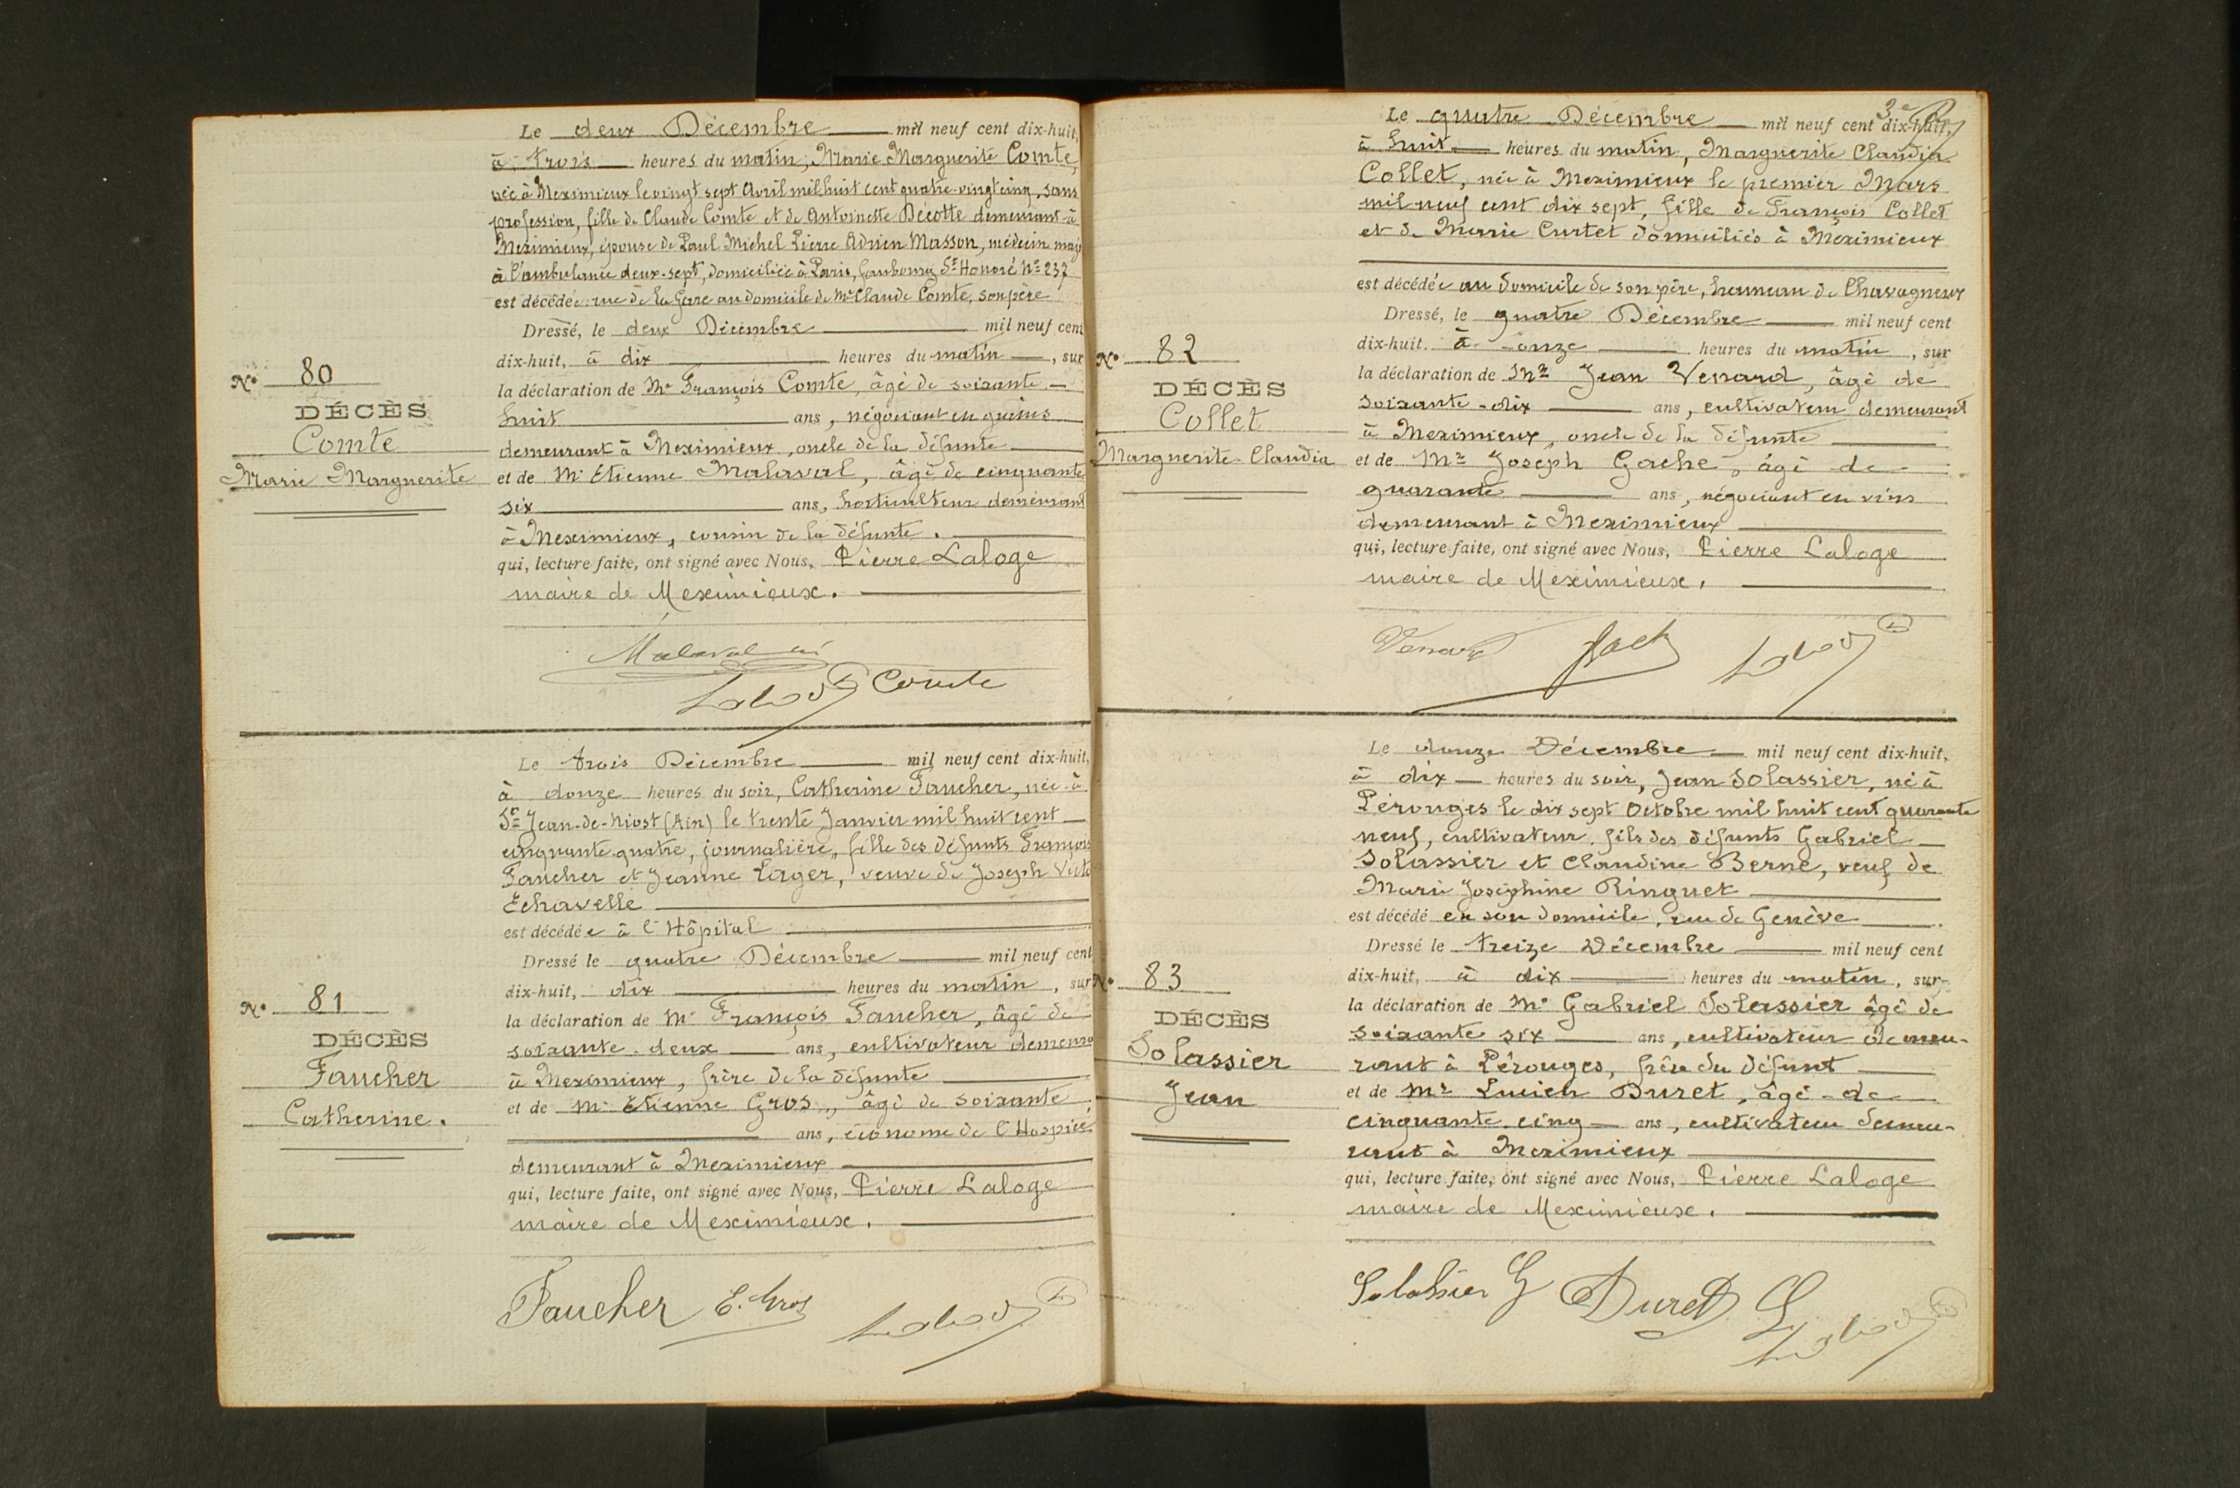 Le deux Décembre mil neuf cent dix-huit,
à trois heures du matin, Marie Marguerite Comte,
née à Meximieux le vingt sept Avril mil huit cent quatre-vingt cinq, sans
profession, fille de Claude Comte et de Antoinette Décotte demeurant à
Meximieux, épouse de Paul Michel Pierre Adrien Masson, médecin major
à l'ambulance deux-sept, domiciliée à Paris, faubourg St Honoré No 237
est décédée rue de la Gare au domicile de Mr Claude Comte, son père
Dressé, le deux Décembre mil neuf cent
dix-huit, à dix heures du matin, sur
No 80
la déclaration de Mr François Comte, âgé de soixante
DÉCÈS
huit ans, négociant en grains
Comte
demeurant à Meximieux, oncle de la défunte
Marie Marguerite
et de Mr Etienne Malaval, âgé de cinquante
six ans, horticulteur demeurant
à Meximieux, cousin de la défunte.
qui, lecture faite, ont signé avec Nous, Pierre Laloge
maire de Meximieux.
Malaval
Comte
Le trois Décembre mil neuf cent dix-huit,
à douze heures du soir, Catherine Faucher, née à
St Jean-de-Niost (Ain) le trente Janvier mil huit cent
cinquante-quatre, journalière, fille des défunts François
Faucher et Jeanne Lager, veuve de Joseph
Echavelle
est décédée à l'Hôpital
Dressé le quatre Décembre mil neuf cent
dix-huit, dix heures du matin, sur
No 81
la déclaration de Mr François Faucher, âgé de
DÉCÈS
soixante-deux ans, cultivateur demeura
Faucher
à Meximieux, frère de la défunte
Catherine.
et de Mr Etienne Gros, âgé de soixante
ans, économe de l'Hospice
demeurant à Meximieux
qui, lecture faite, ont signé avec Nous, Pierre Laloge
maire de Meximieux.
Faucher E. Gros
3e
Le quatre Décembre mil neuf cent dix-huit,
à huit heures du matin, Marguerite Claudia
Collet, née à Meximieux le premier Mars
mil neuf cent dix sept, fille de François Collet
et de Marie Curtet domiciliés à Meximieux
est décédée au domicile de son père, hameau de Chavagneux
Dressé, le quatre Décembre mil neuf cent
dix-huit, à onze heures du matin, sur
No 82
la déclaration de Mr Jean Venard, âgé de
DÉCÈS
soixante-dix ans, cultivateur demeurant
Collet
à Meximieux, oncle de la défunte
Marguerite Claudia
et de Mr Joseph Gache, âgé de
quarante ans, négociant en vins
demeurant à Meximieux
qui, lecture faite, ont signé avec Nous, Pierre Laloge
maire de Meximieux.
Venard
Le douze Décembre mil neuf cent dix-huit,
à dix heures du soir, Jean Solassier, né à
Pérouges le dix sept Octobre mil huit cent quarante
neuf, cultivateur, fils des défunts Gabriel
Solassier et Claudine Berne, veuf de
Marie Joséphine Ringuet
est décédé en son domicile, rue de Genève
Dressé le treize Décembre mil neuf cent
dix-huit, à dix heures du matin, sur
No 83
la déclaration de Mr Gabriel Solassier âgé de
DÉCÈS
soixante six ans, cultivateur demeu-
Solassier
rant à Pérouges, frère du défunt
Jean
et de Mr Lucien Duret, âgé de
cinquante-cinq ans, cultivateur demeu-
rant à Meximieux
qui, lecture faite, ont signé avec Nous, Pierre Laloge
maire de Meximieux.
Solassier G Duret L